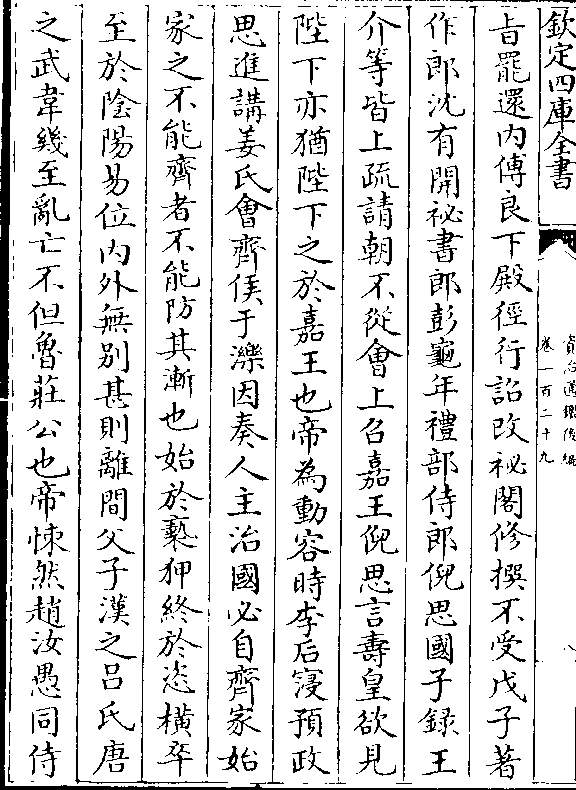 欽定四庫全書
資治通鑑後編
卷一百二十九
八
㫖罷還内傅良下殿徑行詔改祕閣修撰不受戊子著
作郎沈有開祕書郎彭龜年禮部侍郎倪思國子録王
介等皆上疏請朝不從會上召嘉王倪思言壽皇欲見
陛下亦猶陛下之於嘉王也帝為動容時李后寖預政
思進講姜氏㑹齊侯于濼因奏人主治國必自齊家始
家之不能齊者不能防其漸也始於䙝狎終於恣橫卒
至於陰陽易位内外無别甚則離間父子漢之吕氏唐
之武韋幾至亂亡不但魯莊公也帝悚然趙汝愚同侍